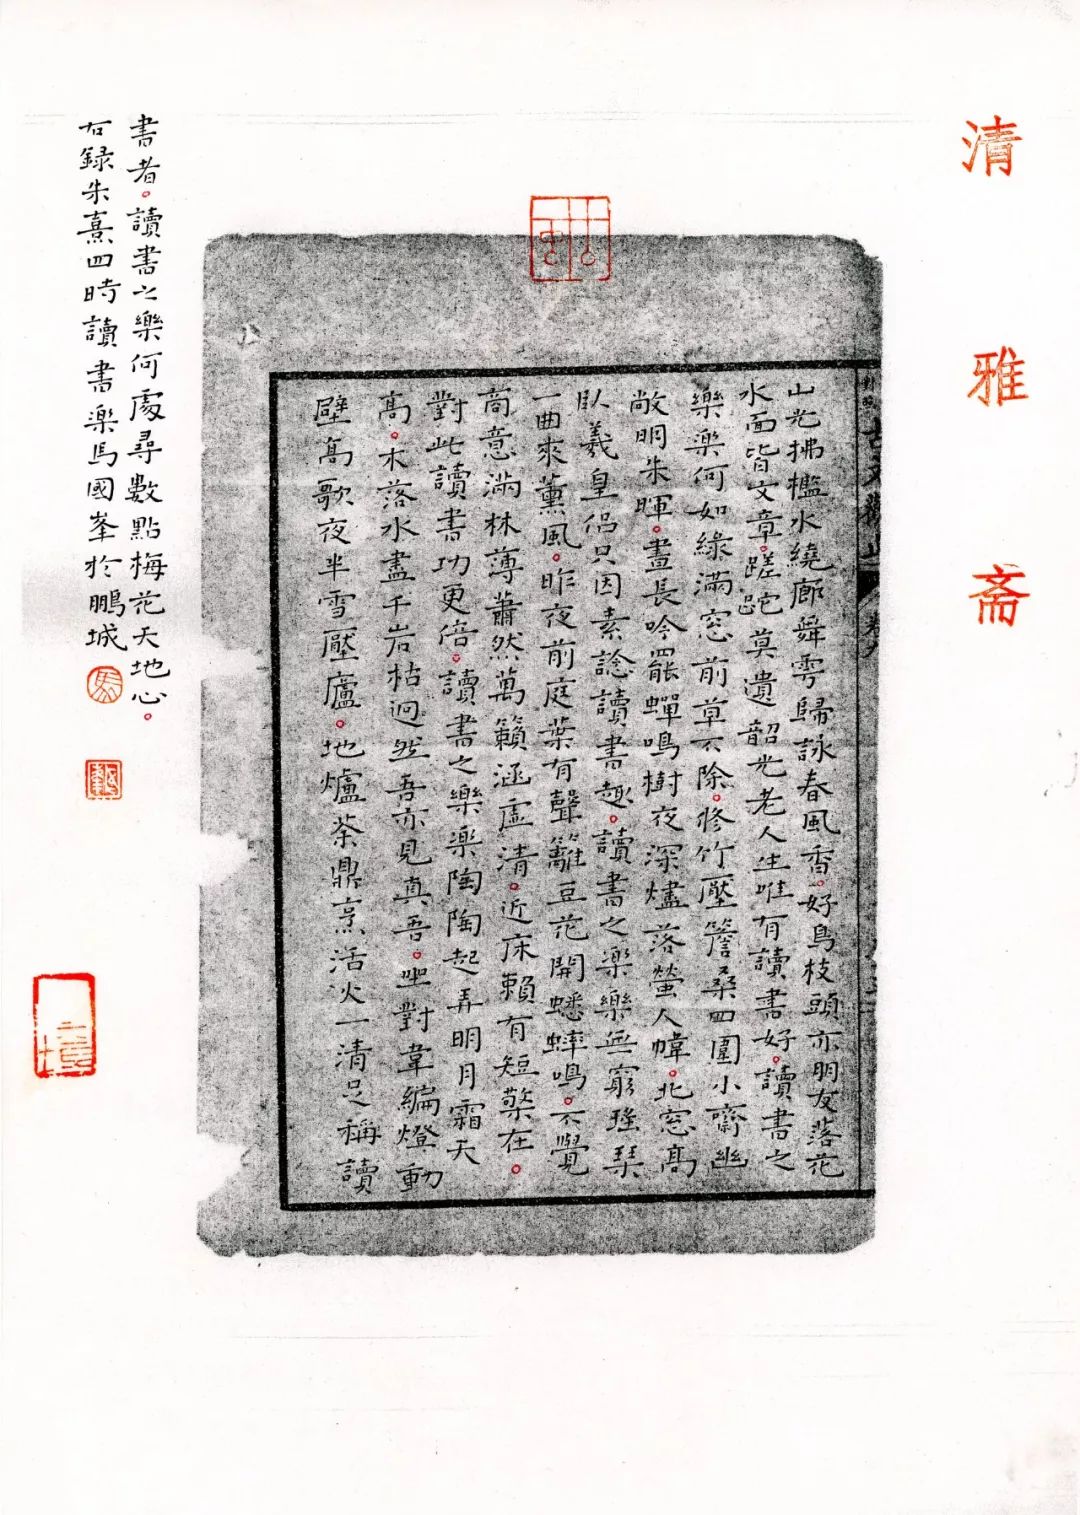 清雅斋
山光拂檻水繞廊舞雩歸詠春風香。好鳥枝頭亦朋友落花
水面皆文章。蹉跎莫遺韶光老人生唯有讀書好。讀書之
樂樂何如綠滿窓前草不除。修竹壓簷桑四圍小齋幽
敞明朱暉。晝長吟罷蟬鳴樹夜深燼落螢人幃。北窓高
臥羲皇侶只因素諗讀書趣。讀書之樂樂無窮瑤琴
一曲來薰風。昨夜前庭葉有聲籬豆花開蟋蟀鳴。不覺
商意滿林薄蕭然萬籟涵虛清。近床賴有短檠在。
對此讀書功更倍。讀書之樂樂陶陶起弄明月霜天
高。木落水盡千岩枯迥然吾亦見真吾。坐對韋編燈動
壁高歌夜半雪壓廬。地爐茶鼎烹活火一清足稱讀
書者。讀書之樂何處尋數點梅花天地心。
右録朱熹四時讀書樂馬國峯於鵬城